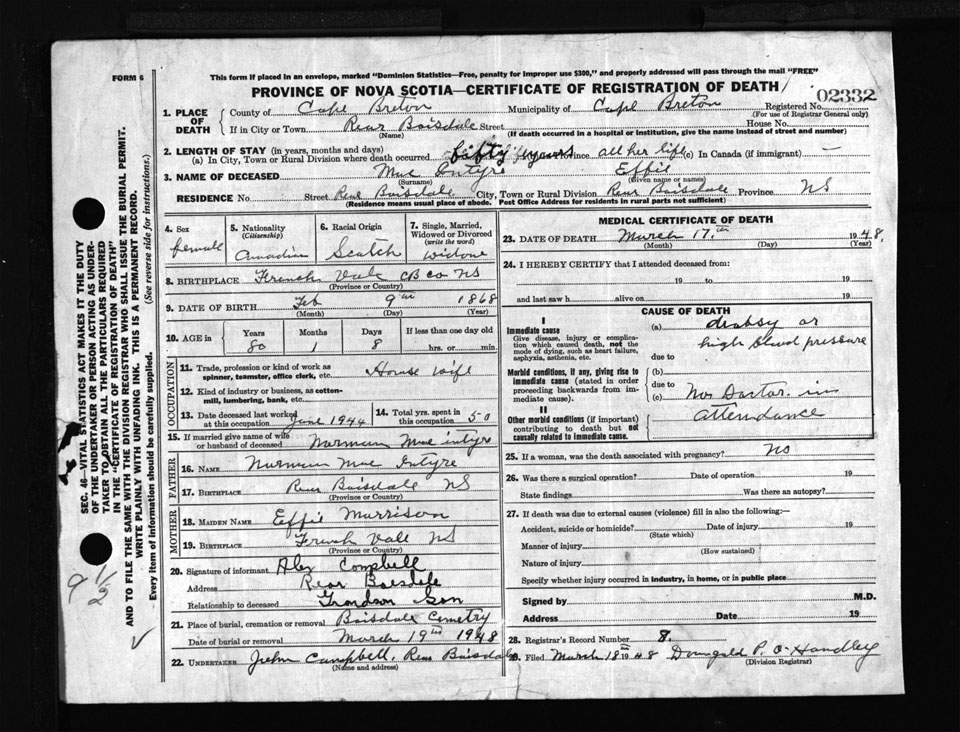 FORM 6
This form if placed in an envelope, marked "Dominion Statistics—Free, penalty for improper use $300," and properly addressed will pass through the mail "FREE"
PROVINCE OF NOVA SCOTIA—CERTIFICATE OF REGISTRATION OF DEATH
02332
1. PLACE OF DEATH
County of Cape Breton Municipality of Cape Breton Registered No.
(For use of Registrar General only)
If in City or Town Rear Boisdale Street House No.
(Name) (If death occurred in a hospital or institution, give the name instead of street and number)
2. LENGTH OF STAY (in years, months and days)
(a) In City, Town or Rural Division where death occurred fifty years Province all her life (c) In Canada (if immigrant) —
3. NAME OF DECEASED Mac Intyre Effie
(Surname) (Given name or names)
RESIDENCE No. Street Rear Boisdale City, Town or Rural Division Rear Boisdale Province NS
(Residence means usual place of abode. Post Office Address for residents in rural parts not sufficient)
4. Sex female
5. Nationality (Citizenship) Canadian
6. Racial Origin Scotch
7. Single, Married, Widowed or Divorced (write the word) widow
8. BIRTHPLACE French Vale CB co NS
(Province or Country)
9. DATE OF BIRTH Feb 9th 1868
(Month) (Day) (Year)
10. AGE in Years Months Days If less than one day old
80 1 8 hrs. or min.
OCCUPATION
11. Trade, profession or kind of work as spinner, teamster, office clerk, etc. House wife
12. Kind of industry or business, as cotton-mill, lumbering, bank, etc.
13. Date deceased last worked at this occupation June 1944
14. Total yrs. spent in this occupation 50
15. If married give name of wife or husband of deceased Norman Mac intyre
FATHER
16. NAME Norman Mac Intyre
17. BIRTHPLACE Rear Boisdale NS
(Province or Country)
MOTHER
18. MAIDEN NAME Effie Morrison
19. BIRTHPLACE French Vale NS
(Province or Country)
20. Signature of informant Alex Campbell
Address Rear Boisdale
Relationship to deceased Grandson Son
21. Place of burial, cremation or removal Boisdale Cemetry
Date of burial or removal March 19th 1948
22. UNDERTAKER John Campbell, Rear Boisdale
(Name and address)
MEDICAL CERTIFICATE OF DEATH
23. DATE OF DEATH March 17th 1948
(Month) (Day) (Year)
24. I HEREBY CERTIFY that I attended deceased from:
19 to 19
and last saw h alive on 19
CAUSE OF DEATH
I
Immediate cause
Give disease, injury or complication which caused death, not the mode of dying, such as heart failure, asphyxia, asthenia, etc.
(a) drobsy or
high blood pressure
due to
Morbid conditions, if any, giving rise to immediate cause (stated in order proceeding backwards from immediate cause).
(b)
due to
(c) No Doctor in
attendance
II
Other morbid conditions (if important) contributing to death but not causally related to immediate cause.
25. If a woman, was the death associated with pregnancy? No
26. Was there a surgical operation? Date of operation 19
State findings Was there an autopsy?
27. If death was due to external causes (violence) fill in also the following:—
Accident, suicide or homicide? Date of injury 19
(State which)
Manner of injury
(How sustained)
Nature of injury
Specify whether injury occurred in industry, in home, or in public place
Signed by M.D.
Address Date 19
28. Registrar's Record Number 8.
29. Filed March 18th 1948 Donigald P. O'Handley
(Division Registrar)
SEC. 46—VITAL STATISTICS ACT MAKES IT THE DUTY
OF THE UNDERTAKER OR PERSON ACTING AS UNDER-
TAKER TO OBTAIN ALL THE PARTICULARS REQUIRED
IN THE "CERTIFICATE OF REGISTRATION OF DEATH"
AND TO FILE THE SAME WITH THE DIVISION REGISTRAR WHO SHALL ISSUE THE BURIAL PERMIT.
WRITE PLAINLY WITH UNFADING INK. THIS IS A PERMANENT RECORD.
Every item of information should be carefully supplied. (See reverse side for instructions.)
9 1/2